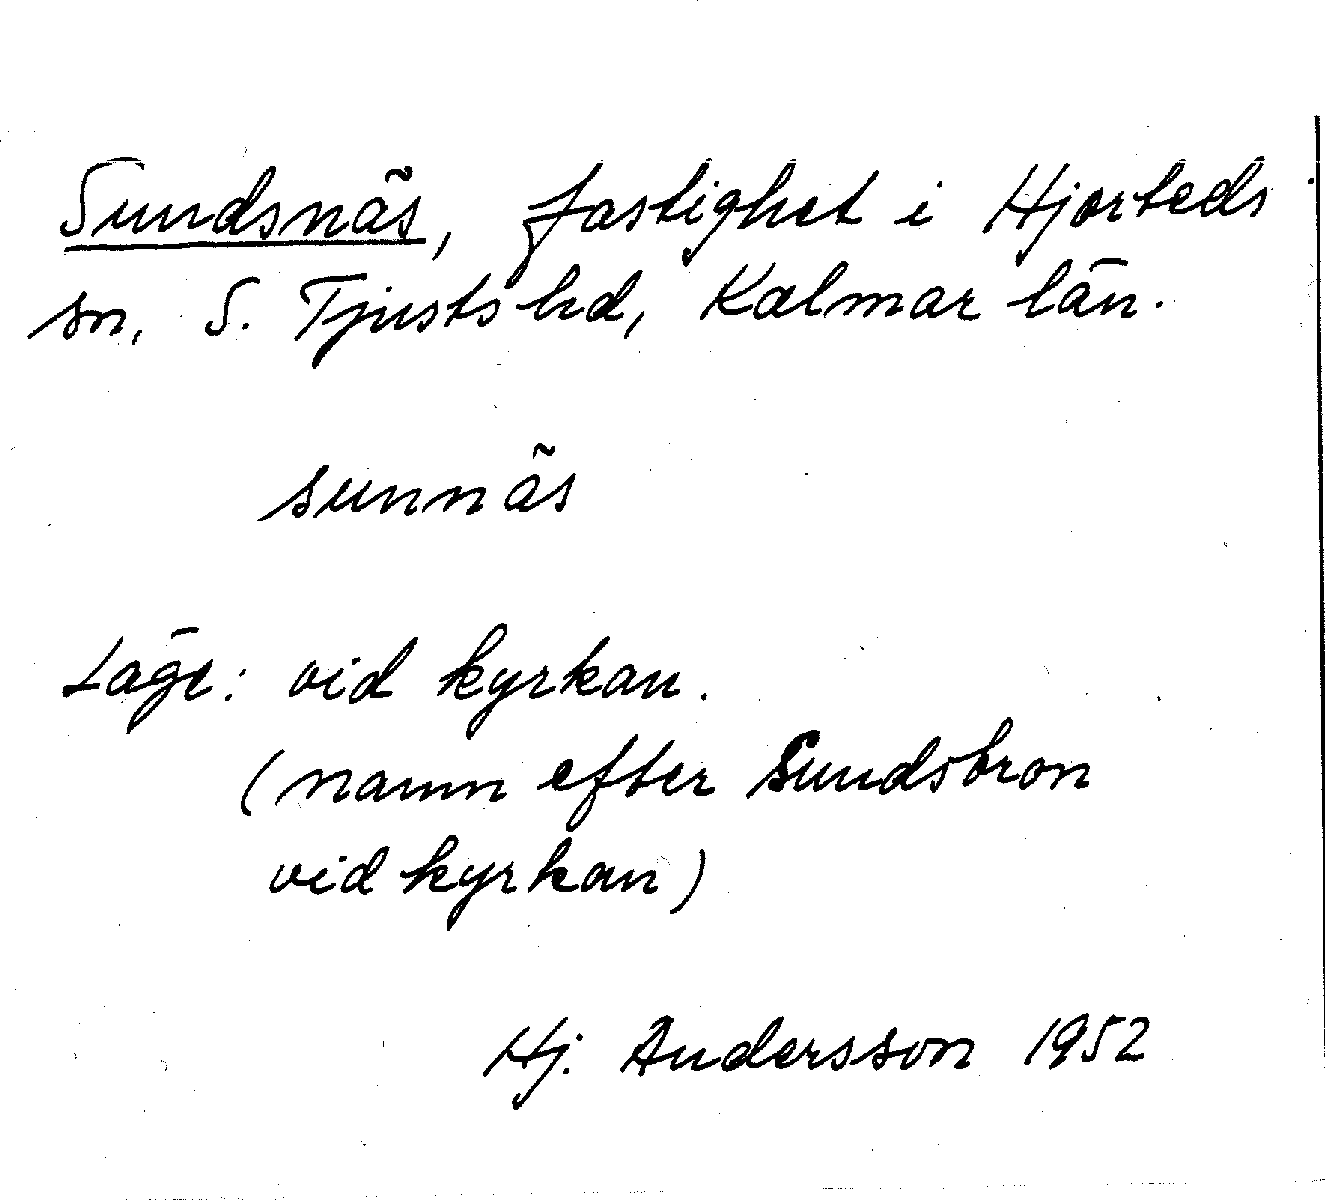 Sundsnäs, fastighet i Hjorteds
sn, S. Tjusts hd, Kalmar län.
sunnäs
Läge: vid kyrkan.
(namn efter Sundsbron
vid kyrkan)
Hj. Andersson 1952